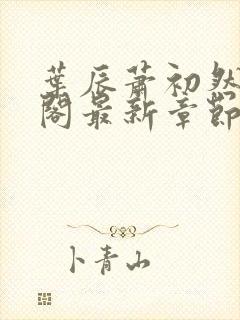 葉辰蕭初然
閣最新章節
卜青山